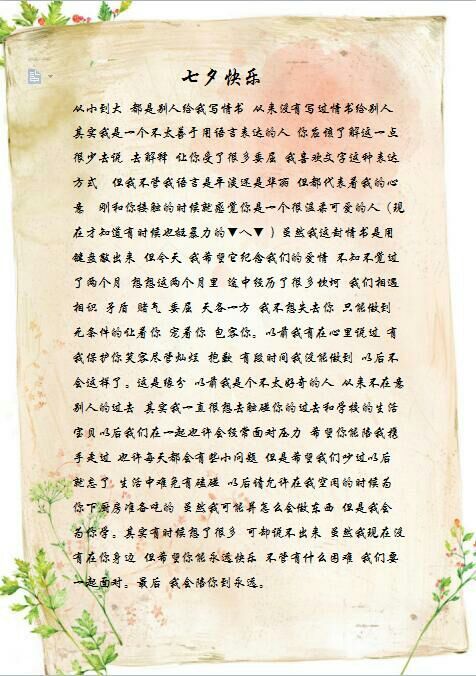 七夕快乐
从小到大 都是别人给我写情书 从来没有写过情书给别人
其实我是一个不太善于用语言表达的人 你应该了解这一点
很少去说 去解释 让你受了很多委屈 我喜欢文字这种表达
方式 但我不管我语言是平淡还是华丽 但都代表着我的心
意 刚和你接触的时候就感觉你是一个很温柔可爱的人（现
在才知道有时候也挺暴力的▼ヘ▼）虽然我这封情书是用
键盘敲出来 但今天 我希望它纪念我们的爱情 不知不觉过
了两个月 想想这两个月里 途中经历了很多坎坷 我们相遇
相识 矛盾 赌气 委屈 天各一方 我不想失去你 只能做到
无条件的让着你 宠着你 包容你。以前我有在心里说过 有
我保护你笑容尽管灿烂 抱歉 有段时间我没能做到 以后不
会这样了。这是缘分 以前我是个不太好奇的人 从来不在意
别人的过去 其实我一直很想去触碰你的过去和学校的生活
宝贝以后我们在一起也许会经常面对压力 希望你能陪我携
手走过 也许每天都会有些小问题 但是希望我们吵过以后
就忘了 生活中难免有磕碰 以后请允许在我空闲的时候为
你下厨房准备吃的 虽然我可能并怎么会做东西 但是我会
为你学。其实有时候想了很多 可却说不出来 虽然我现在没
有在你身边 但希望你能永远快乐 不管有什么困难 我们要
一起面对。最后 我会陪你到永远。